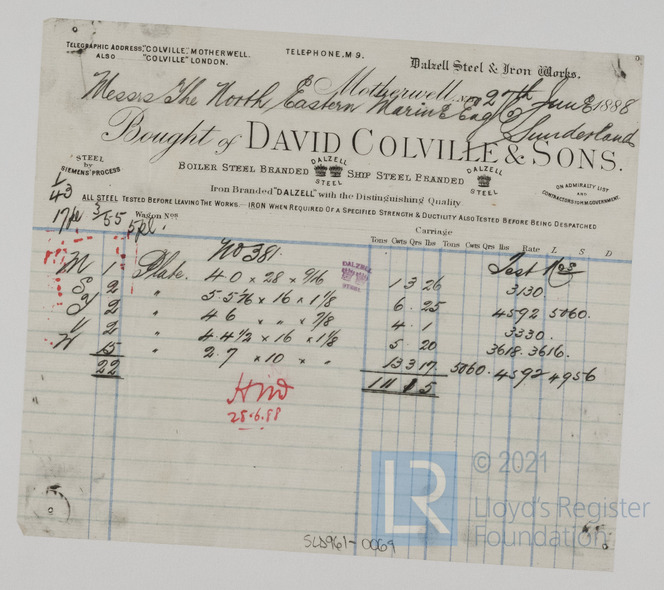 TELEGRAPHIC ADDRESS, "COLVILLE", MOTHERWELL.
ALSO "COLVILLE" LONDON.
TELEPHONE, M 9.
Dalzell Steel & Iron Works.
Motherwell, N.B. 27th June 1888
Messrs The North Eastern Marine Eng Co
Sunderland
Bought of DAVID COLVILLE & SONS.
STEEL by SIEMENS' PROCESS
BOILER STEEL BRANDED DALZELL STEEL SHIP STEEL BRANDED DALZELL STEEL
ON ADMIRALTY LIST AND CONTRACTORS TO H.M. GOVERNMENT.
Iron Branded "DALZELL" with the Distinguishing Quality
ALL STEEL TESTED BEFORE LEAVING THE WORKS.— IRON WHEN REQUIRED OF A SPECIFIED STRENGTH & DUCTILITY ALSO TESTED BEFORE BEING DESPATCHED
43
17pl 3/55 Wagon Nos 5pl.
Carriage
Tons Cwts Qrs lbs Tons Cwts Qrs lbs Rate L S D
No 381. Test Nos
M 1 Plate. 4.0 × 28 × 9/16 1 3 26 3130
S 2 " 5.5 5/16 × 16 × 1 1/8 6. 25 4592 5060.
2 " 4 6 " " × 7/8 4. 1 3330.
V 2 " 4.4 1/2 × 16 × 1 1/8 5 20 3618. 3616.
W 15 " 2.7 × 10 × " 13 3 17 5060. 4592 4956
22 1 11 5
DALZELL STEEL
Hind
28.6.88
LR
© 2021
Lloyd's Register
Foundation
SLD961-0069